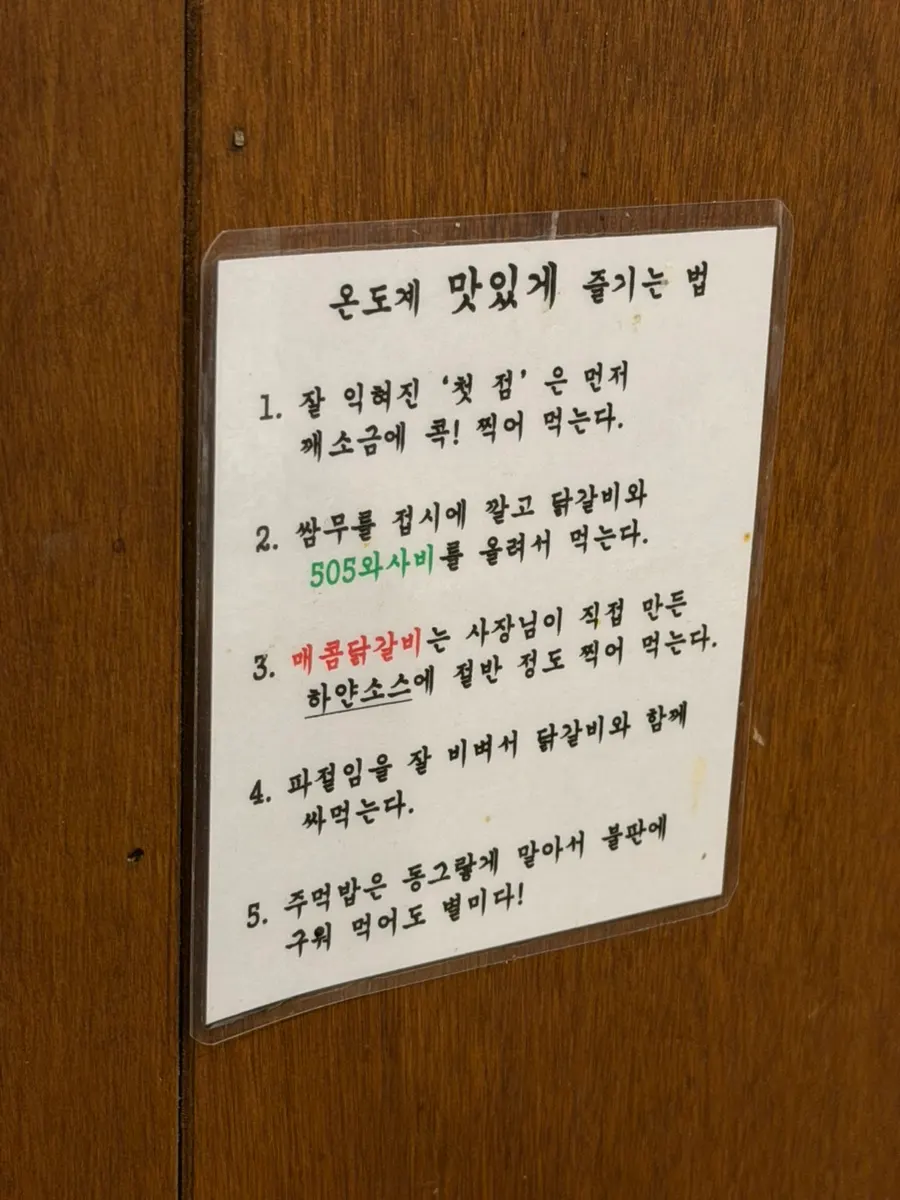 온도계 맛있게 즐기는 법
1. 잘 익혀진 ‘첫 점’ 은 먼저
깨소금에 콕! 찍어 먹는다.
2. 쌈무를 접시에 깔고 닭갈비와
505와사비를 올려서 먹는다.
3. 매콤닭갈비는 사장님이 직접 만든
하얀소스에 절반 정도 찍어 먹는다.
4. 파절임을 잘 비벼서 닭갈비와 함께
싸먹는다.
5. 주먹밥은 동그랗게 말아서 불판에
구워 먹어도 별미다!